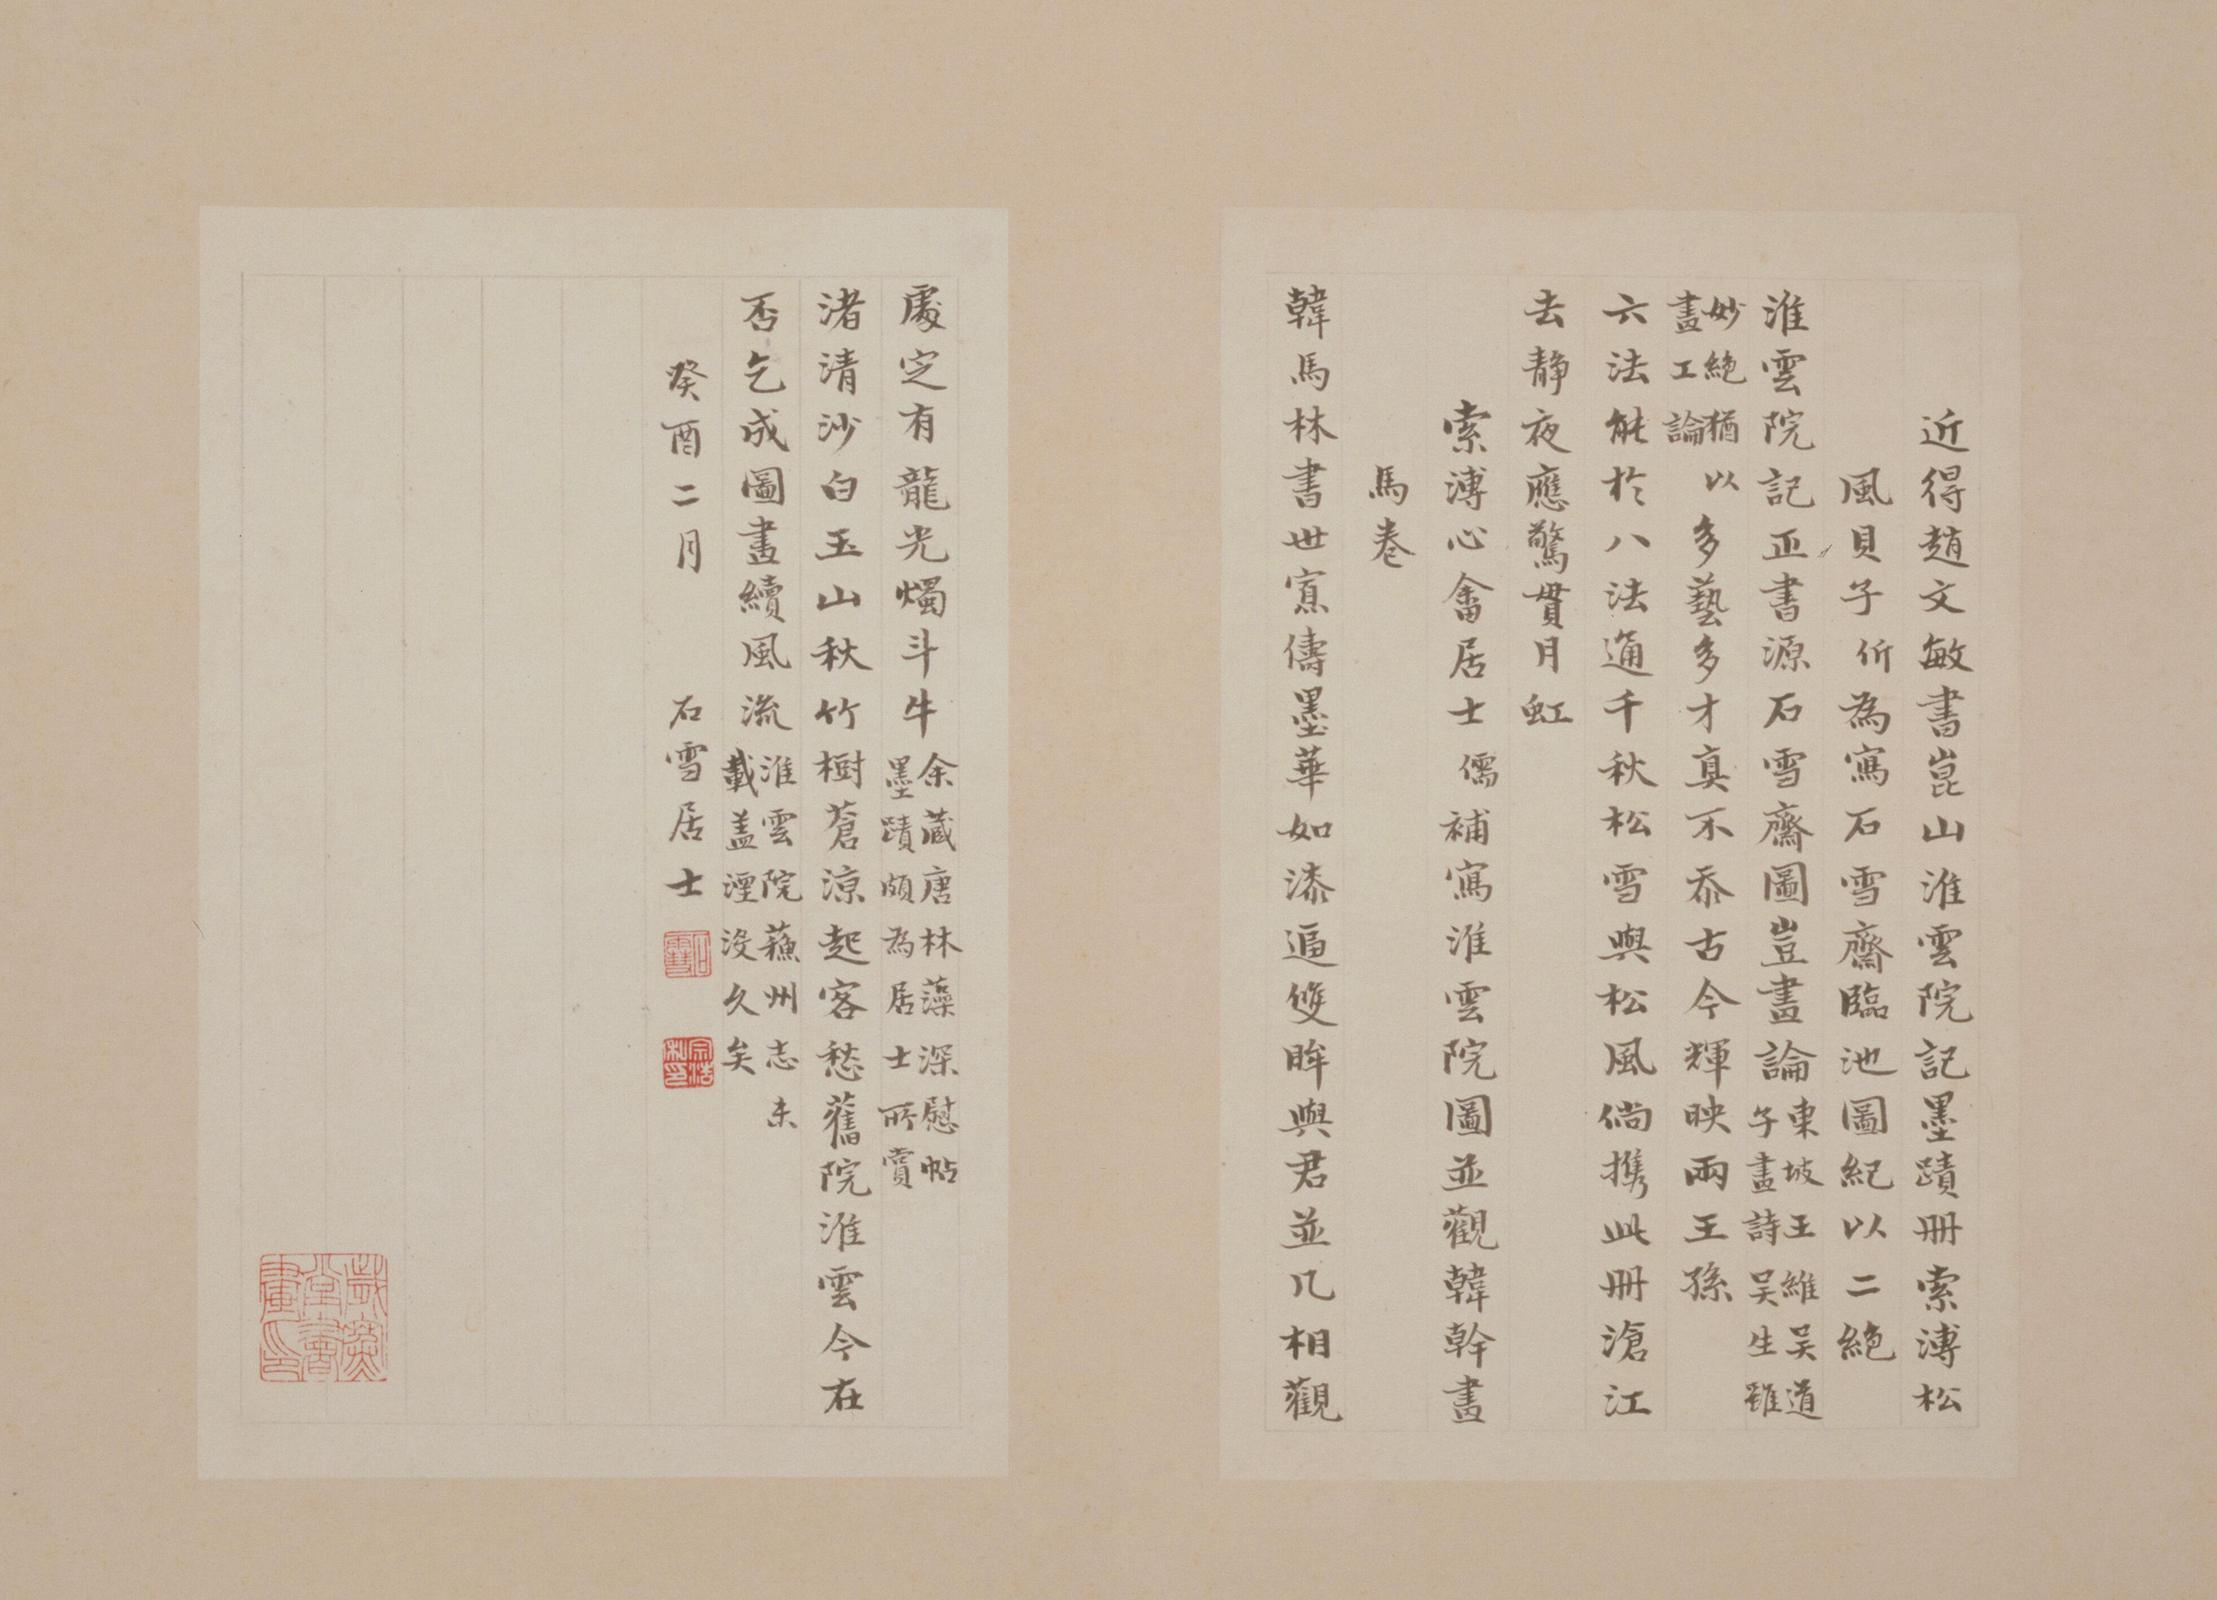 近得趙文敏書崑山淮雲院記墨蹟冊索溥松
風貝子𠊓為寫石雪齋臨池圖紀以二絕
淮雲院記正書源石雪齋圖豈畫論東坡王維吳道
子畫詩吳生雖
妙絕猶
畫工論以多藝多才真不忝古今輝映兩王孫
六法能於八法通千秋松雪與松風倘攜此冊滄江
去靜夜應驚貫月虹
索溥心畬居士儒補寫淮雲院圖並觀韓幹畫
馬卷
韓馬林書世寡儔墨華如漆逼雙眸與君並几相觀
處定有龍光燭斗牛余藏唐林藻深慰帖
墨蹟頗為居士所賞
渚清沙白玉山秋竹樹蒼涼起客愁舊院淮雲今在
否乞成圖畫續風流淮雲院蘇州志未
載蓋湮沒久矣
癸酉二月 石雪居士
石雪
宗浩私印
歲寒堂書畫印